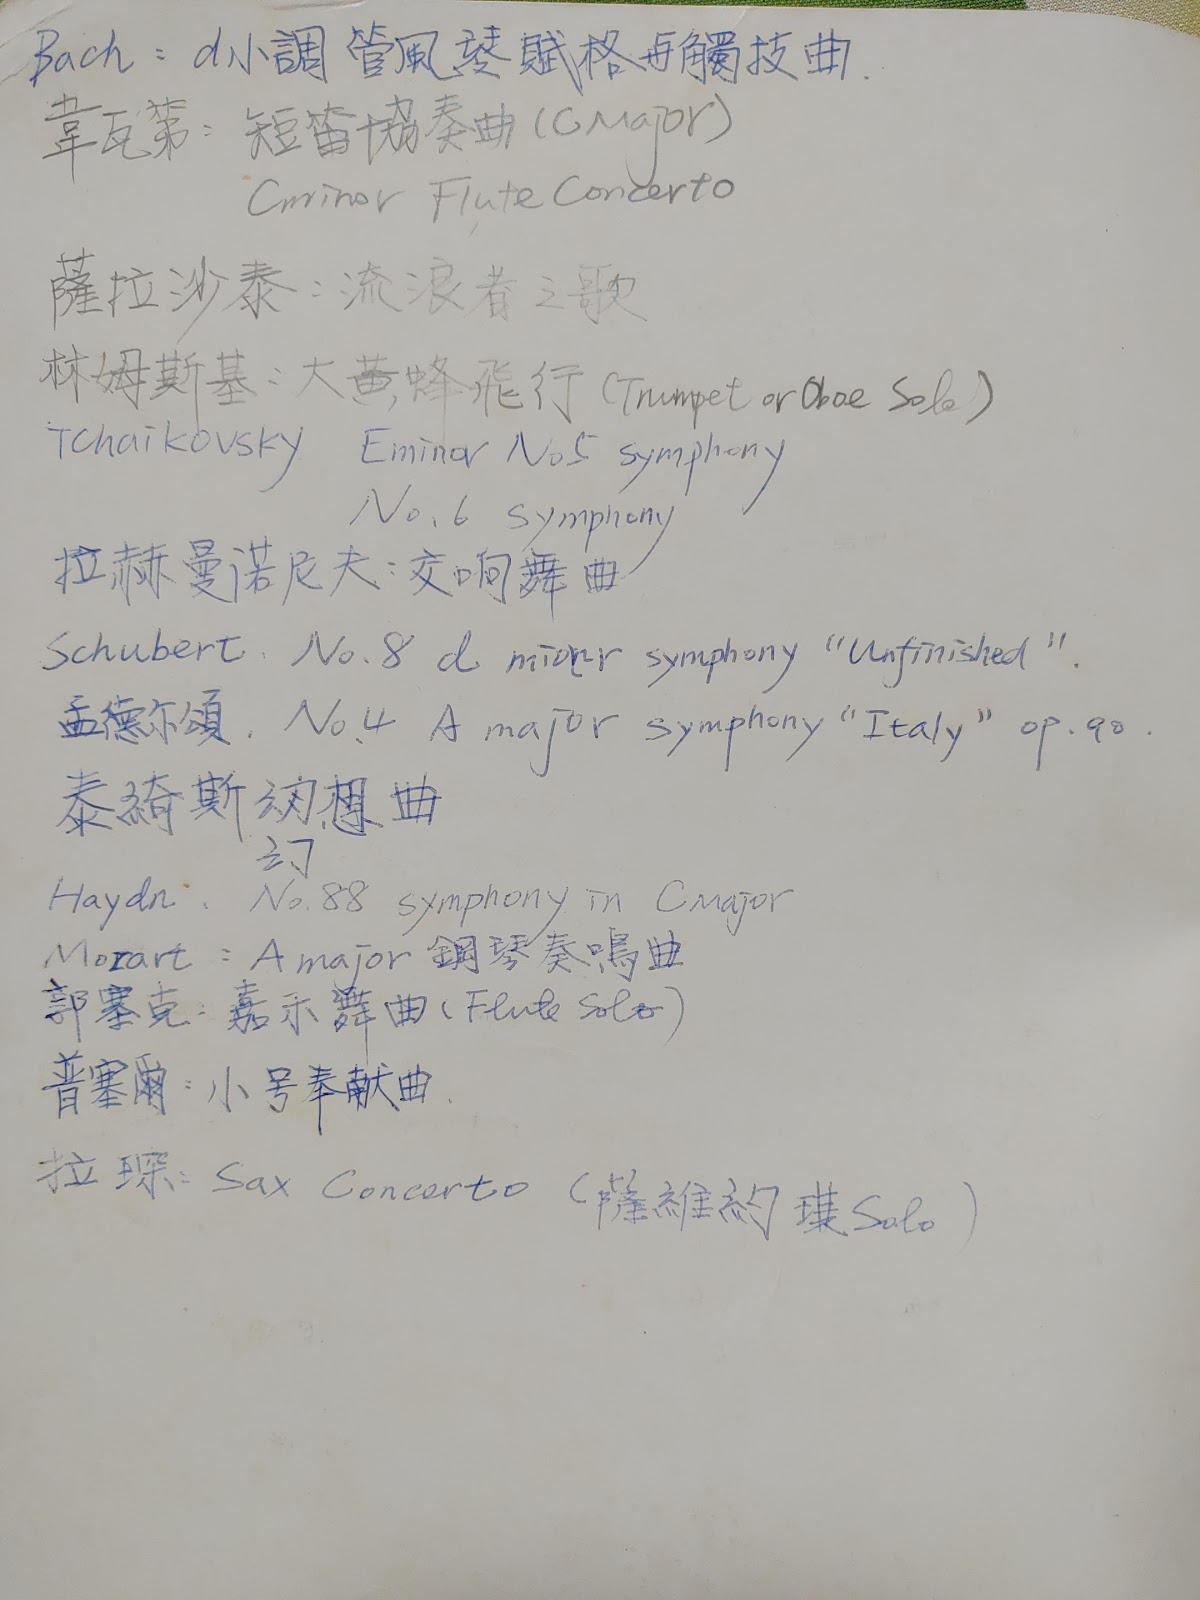 Bach：d小調 管風琴賦格与觸技曲.
韋瓦第：短笛協奏曲(C Major)
Cminor Flute Concerto
薩拉沙泰：流浪者之歌
林姆斯基：大黃蜂飛行 (Trumpet or Oboe Solo)
Tchaikovsky Eminor No5 symphony
No.6 symphony
拉赫曼诺尼夫：交响舞曲
Schubert. No.8 d minor symphony "Unfinished".
孟德尔頌. No.4 A major symphony "Italy" op.90.
泰綺斯 想曲
幻
Haydn. No.88 symphony in C Major
Mozart：A major 鋼琴奏鳴曲
郭塞克：嘉禾舞曲 (Flute Solo)
普塞爾：小号奉献曲.
拉琛：Sax Concerto (薩維約琪 Solo)